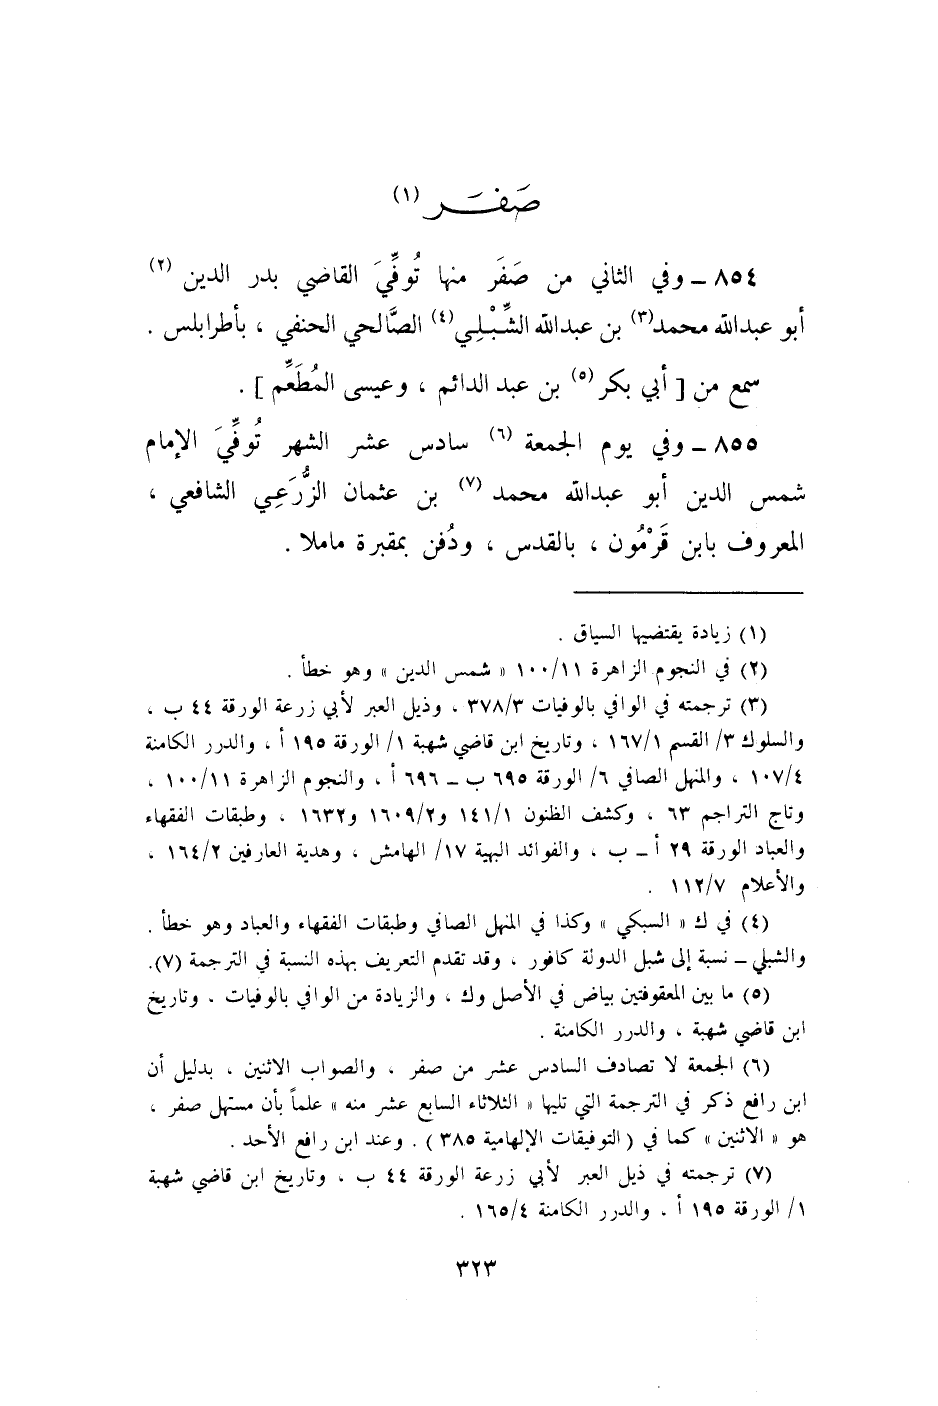 صَفَـر (١)
٨٥٤ ـ وفي الثاني من صَفَر منها تُوفِّيَ القاضي بدر الدين (٢)
أبو عبدالله محمد(٣) بن عبدالله الشِّبْلِي(٤) الصَّالحي الحنفي ، بأطرابلس .
سمع من [ أبي بكر (٥) بن عبد الدائم ، وعيسى المُطَعِّم ] .
٨٥٥ ـ وفي يوم الجمعة (٦) سادس عشر الشهر تُوفِّيَ الإمام
شمس الدين أبو عبدالله محمد (٧) بن عثمان الزُّرَعِي الشافعي ،
المعروف بابن قَرْمُون ، بالقدس ، ودُفن بمقبرة ماملا .
(١) زيادة يقتضيها السياق .
(٢) في النجوم الزاهرة ١١/ ١٠٠ « شمس الدين » وهو خطأ .
(٣) ترجمته في الوافي بالوفيات ٣/ ٣٧٨ ، وذيل العبر لأبي زرعة الورقة ٤٤ ب ،
والسلوك ٣/ القسم ١/ ١٦٧ ، وتاريخ ابن قاضي شهبة ١/ الورقة ١٩٥ أ ، والدرر الكامنة
٤/ ١٠٧ ، والمنهل الصافي ٦/ الورقة ٦٩٥ ب ـ ٦٩٦ أ ، والنجوم الزاهرة ١١/ ١٠٠ ،
وتاج التراجم ٦٣ ، وكشف الظنون ١/ ١٤١ و٢/ ١٦٠٩ و١٦٣٢ ، وطبقات الفقهاء
والعباد الورقة ٢٩ أ ـ ب ، والفوائد البهية ١٧/ الهامش ، وهدية العارفين ٢/ ١٦٤ ،
والأعلام ٧/ ١١٢ .
(٤) في ك « السبكي » وكذا في المنهل الصافي وطبقات الفقهاء والعباد وهو خطأ .
والشبلي ـ نسبة إلى شبل الدولة كافور ، وقد تقدم التعريف بهذه النسبة في الترجمة (٧).
(٥) ما بين المعقوفتين بياض في الأصل وك ، والزيادة من الوافي بالوفيات ، وتاريخ
ابن قاضي شهبة ، والدرر الكامنة .
(٦) الجمعة لا تصادف السادس عشر من صفر ، والصواب الاثنين ، بدليل أن
ابن رافع ذكر في الترجمة التي تليها « الثلاثاء السابع عشر منه » علماً بأن مستهل صفر ،
هو « الاثنين » كما في ( التوفيقات الإلهامية ٣٨٥ ) . وعند ابن رافع الأحد .
(٧) ترجمته في ذيل العبر لأبي زرعة الورقة ٤٤ ب ، وتاريخ ابن قاضي شهبة
١/ الورقة ١٩٥ أ ، والدرر الكامنة ٤/ ١٦٥ .
٣٢٣